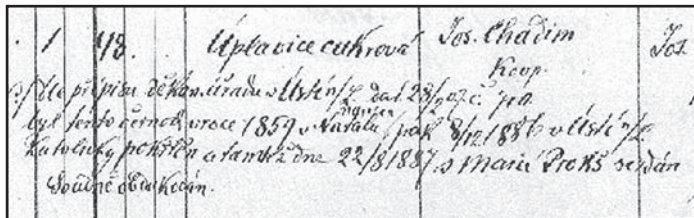 1 48. Úplavice cukrová Jos. Chadim Jos.
Koop.
Dle přípisu děkan. úřadu v Ústí n/L dat 28/9 07 č.
byl tento černoch v roce 1859 v Natalu, pak 8/12 1886 v Ústí n/L
zrozen
katolicky pokřtěn a tamtéž dne 22/8 1887 s Marií Prokš sezdán
Soudně obdukován.